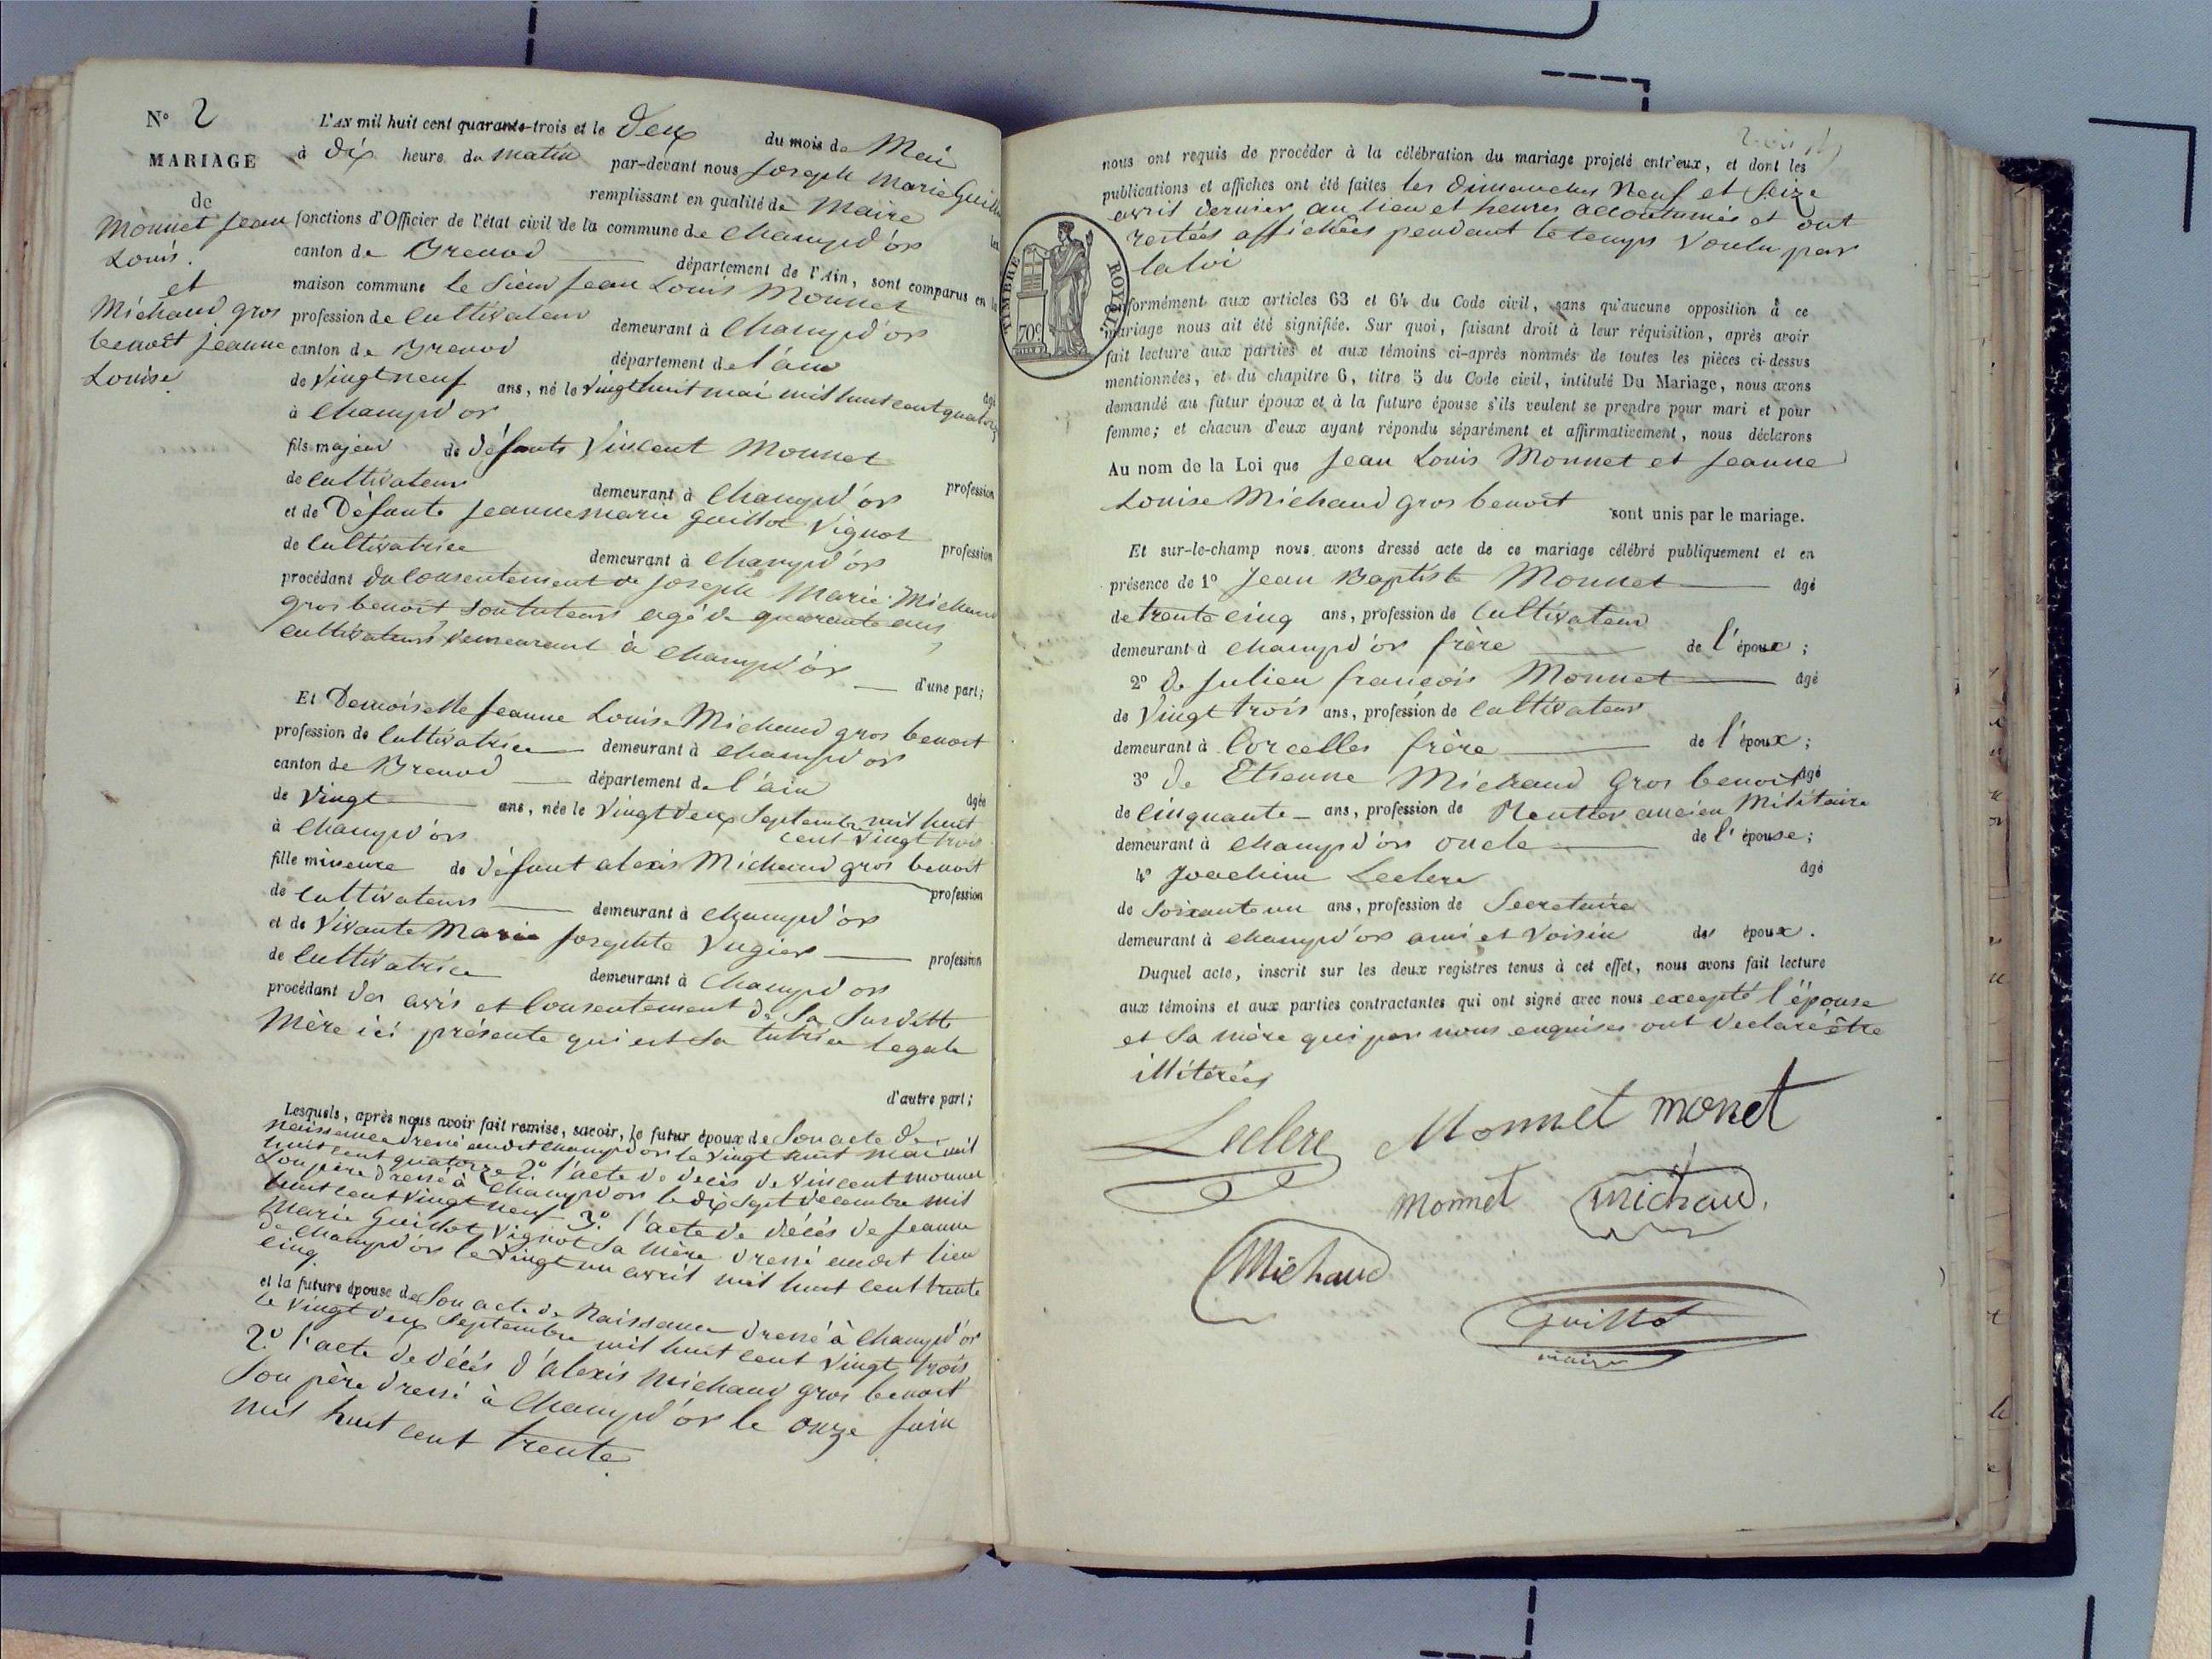 N° 2
MARIAGE
de
Monnet Jean
Louis.
et
Michaud gros
benoit jeanne
Louise
L'AN mil huit cent quarante-trois et le Deux du mois de Mai
à dix heure du matin par-devant nous Joseph Marie Guillot
remplissant en qualité de Maire les
fonctions d'Officier de l'état civil de la commune de Champd'or
canton de Brenod département de l'Ain, sont comparus en la
maison commune le Sieur Jean Louis Monnet
profession de Cultivateur demeurant à Champd'or
canton de Brenod département de l'ain âgé
de Vingt neuf ans, né le Vingt huit mai mil huit cent quatorze
à Champd'or
fils majeur de défunts Vincent Monnet profession
de Cultivateur demeurant à Champd'or
et de Défunte Jeanne marie guillot Vignot profession
de Cultivatrice demeurant à Champd'or
procédant du Consentement de Joseph Marie Michaud
gros benoit son tuteur agé de quarante ans
cultivateur demeurant à Champd'or
d'une part;
Et Demoiselle Jeanne Louise Michaud gros benoit
profession de Cultivatrice demeurant à Champd'or
canton de Brenod département de l'ain âgée
de Vingt ans, née le Vingt deux Septembre mil huit
cent vingt trois
à Champd'or
fille mineure de défunt alexis Michaud gros benoit
profession
de Cultivateur demeurant à Champd'or
et de Vivante Marie Josephte Vugier profession
de Cultivatrice demeurant à Champd'or
procédant des avis et Consentement de Sa Susditte
Mère ici présente qui est Sa tutrice legale
d'autre part;
Lesquels, après nous avoir fait remise, savoir, le futur époux de Son acte de
naissance dressé audit Champd'or le Vingt huit mai mil
huit cent quatorze 2.° l'acte de décès de Vincent monnet
Son père dressé à Champd'or le dix Sept decembre mil
huit cent vingt neuf 3.° l'acte de décès de Jeanne
Marie Guillot Vignot Sa Mère dressé audit lieu
de Champd'or le Vingt un avril mil huit cent trente
cinq
et la future épouse de Son acte de Naissance dressé à Champd'or
le Vingt deux Septembre mil huit cent vingt trois
2.° l'acte de décès d'alexis Michaud gros benoit
Son père dressé à Champd'or le onze Juin
mil huit cent trente
nous ont requis de procéder à la célébration du mariage projeté entr'eux, et dont les
publications et affiches ont été faites les Dimanches Neuf et Seize
avril dernier au lieu et heures accoutumés et ont
restées affichées pendant le temps voulu par
la loi
TIMBRE ROYAL
70c
conformément aux articles 63 et 64 du Code civil, sans qu'aucune opposition à ce
mariage nous ait été signifiée. Sur quoi, faisant droit à leur réquisition, après avoir
fait lecture aux parties et aux témoins ci-après nommés de toutes les pièces ci-dessus
mentionnées, et du chapitre 6, titre 5 du Code civil, intitulé Du Mariage, nous avons
demandé au futur époux et à la future épouse s'ils veulent se prendre pour mari et pour
femme; et chacun d'eux ayant répondu séparément et affirmativement, nous déclarons
Au nom de la Loi que Jean Louis Monnet et Jeanne
Louise Michaud gros benoit sont unis par le mariage.
Et sur-le-champ nous avons dressé acte de ce mariage célébré publiquement et en
présence de 1° Jean Baptiste Monnet âgé
de trente cinq ans, profession de Cultivateur
demeurant à Champd'or frère de l'époux;
2° de Julien françois Monnet âgé
de Vingt trois ans, profession de Cultivateur
demeurant à Corcelles frère de l'époux;
3° de Etienne Michaud Gros benoit âgé
de Cinquante ans, profession de Rentier ancien Militaire
demeurant à Champd'or oncle de l'épouse;
4° Joachim Leclerc âgé
de Soixante un ans, profession de Secretaire
demeurant à Champd'or ami et Voisin des époux.
Duquel acte, inscrit sur les deux registres tenus à cet effet, nous avons fait lecture
aux témoins et aux parties contractantes qui ont signé avec nous excepté l'épouse
et Sa mère qui par nous enquises ont declaré être
illitérées
Leclerc Monnet monet
Monnet Michaud.
Michaud
Guillot
maire